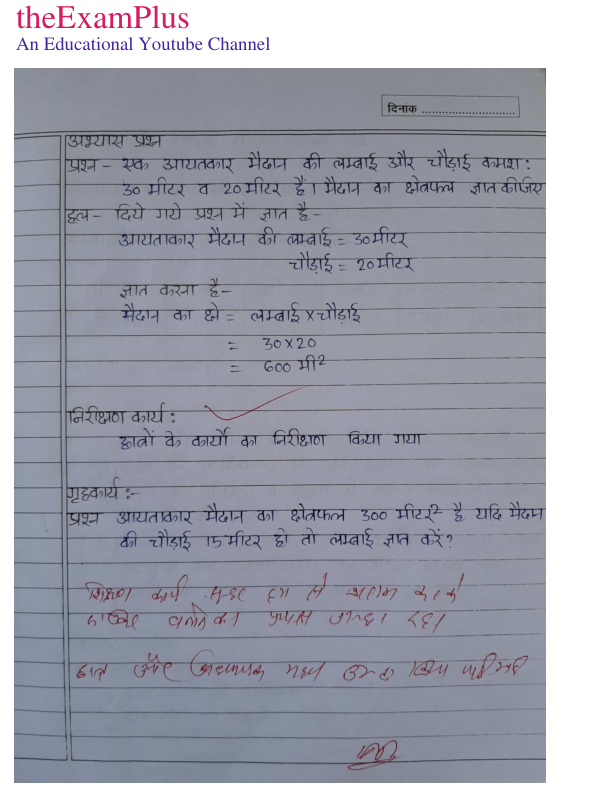 theExamPlus
An Educational Youtube Channel
दिनांक ..............................
अभ्यास प्रश्न
प्रश्न – एक आयतकार मैदान की लम्बाई और चौड़ाई क्रमश:
30 मीटर व 20 मीटर है। मैदान का क्षेत्रफल ज्ञात कीजिए
हल – दिये गये प्रश्न में ज्ञात है –
आयाताकार मैदान की लम्बाई = 30 मीटर
चौड़ाई = 20 मीटर
ज्ञात करना है –
मैदान का क्षे = लम्बाई x चौड़ाई
= 30 x 20
= 600 मी²
निरीक्षण कार्य :
छात्रों के कार्यों का निरीक्षण किया गया
गृहकार्य :-
प्रश्न आयताकार मैदान का क्षेत्रफल 300 मीटर² है यदि मैदान
की चौड़ाई 15 मीटर हो तो लम्बाई ज्ञात करें?
शिक्षण कार्य
का प्रयास रहा।
छात्र और अध्यापक मध्य